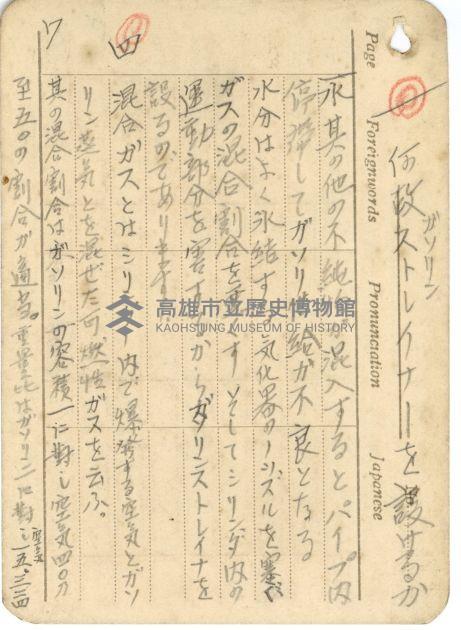 何故ガソリンストレイナーを設けるか
水其の他の不純物が混入するとパイプ内
停滞してガソリン供給が不良となる
水分はよく氷結する又気化器のノーズルを塞ぐ
ガスの混合割合を悪くすそしてシリンダ内の
運動部分を害するからガソリンストレイナを
設るのであります
四
混合ガスとはシリンダ内で爆発する空気とガソ
リン蒸気とを混ぜた可燃性ガスを云ふ。
ワ
其の混合割合はガソリンの容積一に対し空気四〇乃
至五〇の割合が適当。重量比はガソリン一に対し空気一五.三四
Page
Foreignwords
Pronunciation
Japanese
高雄市立歷史博物館
KAOHSIUNG MUSEUM OF HISTORY